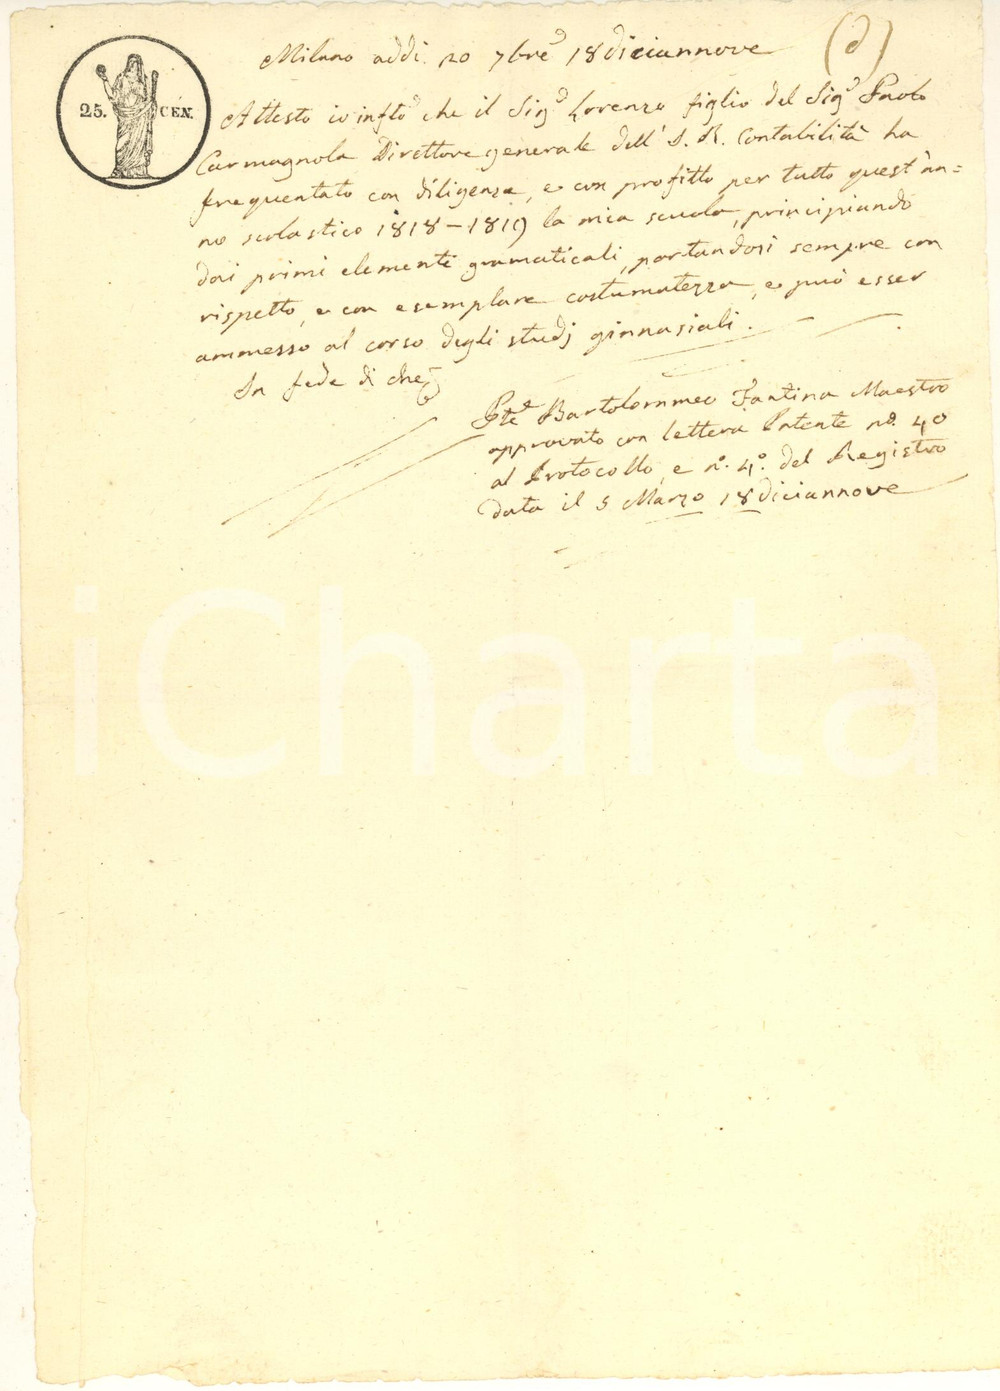 (d)
Milano addi 20 7bre 18diciannove
25. CEN.
Attesto io infto che il Sigr Lorenzo figlio del Sigr Paolo
Carmagnola Direttore generale dell' I. R. Contabilità ha
frequentato con diligenza, e con profitto per tutto quest'an=
no scolastico 1818-1819 la mia scuola, principiando
dai primi elementi gramaticali, portandosi sempre con
rispetto, e con esemplare costumatezza, e può esser
ammesso al corso degli studj ginnasiali.
In fede di che
Pte Bartolommeo Fantina Maestro
approvato con lettera Patente no. 40
al Protocollo, e no. 4o. del Registro
data il 5 Marzo 18diciannove
iCharta